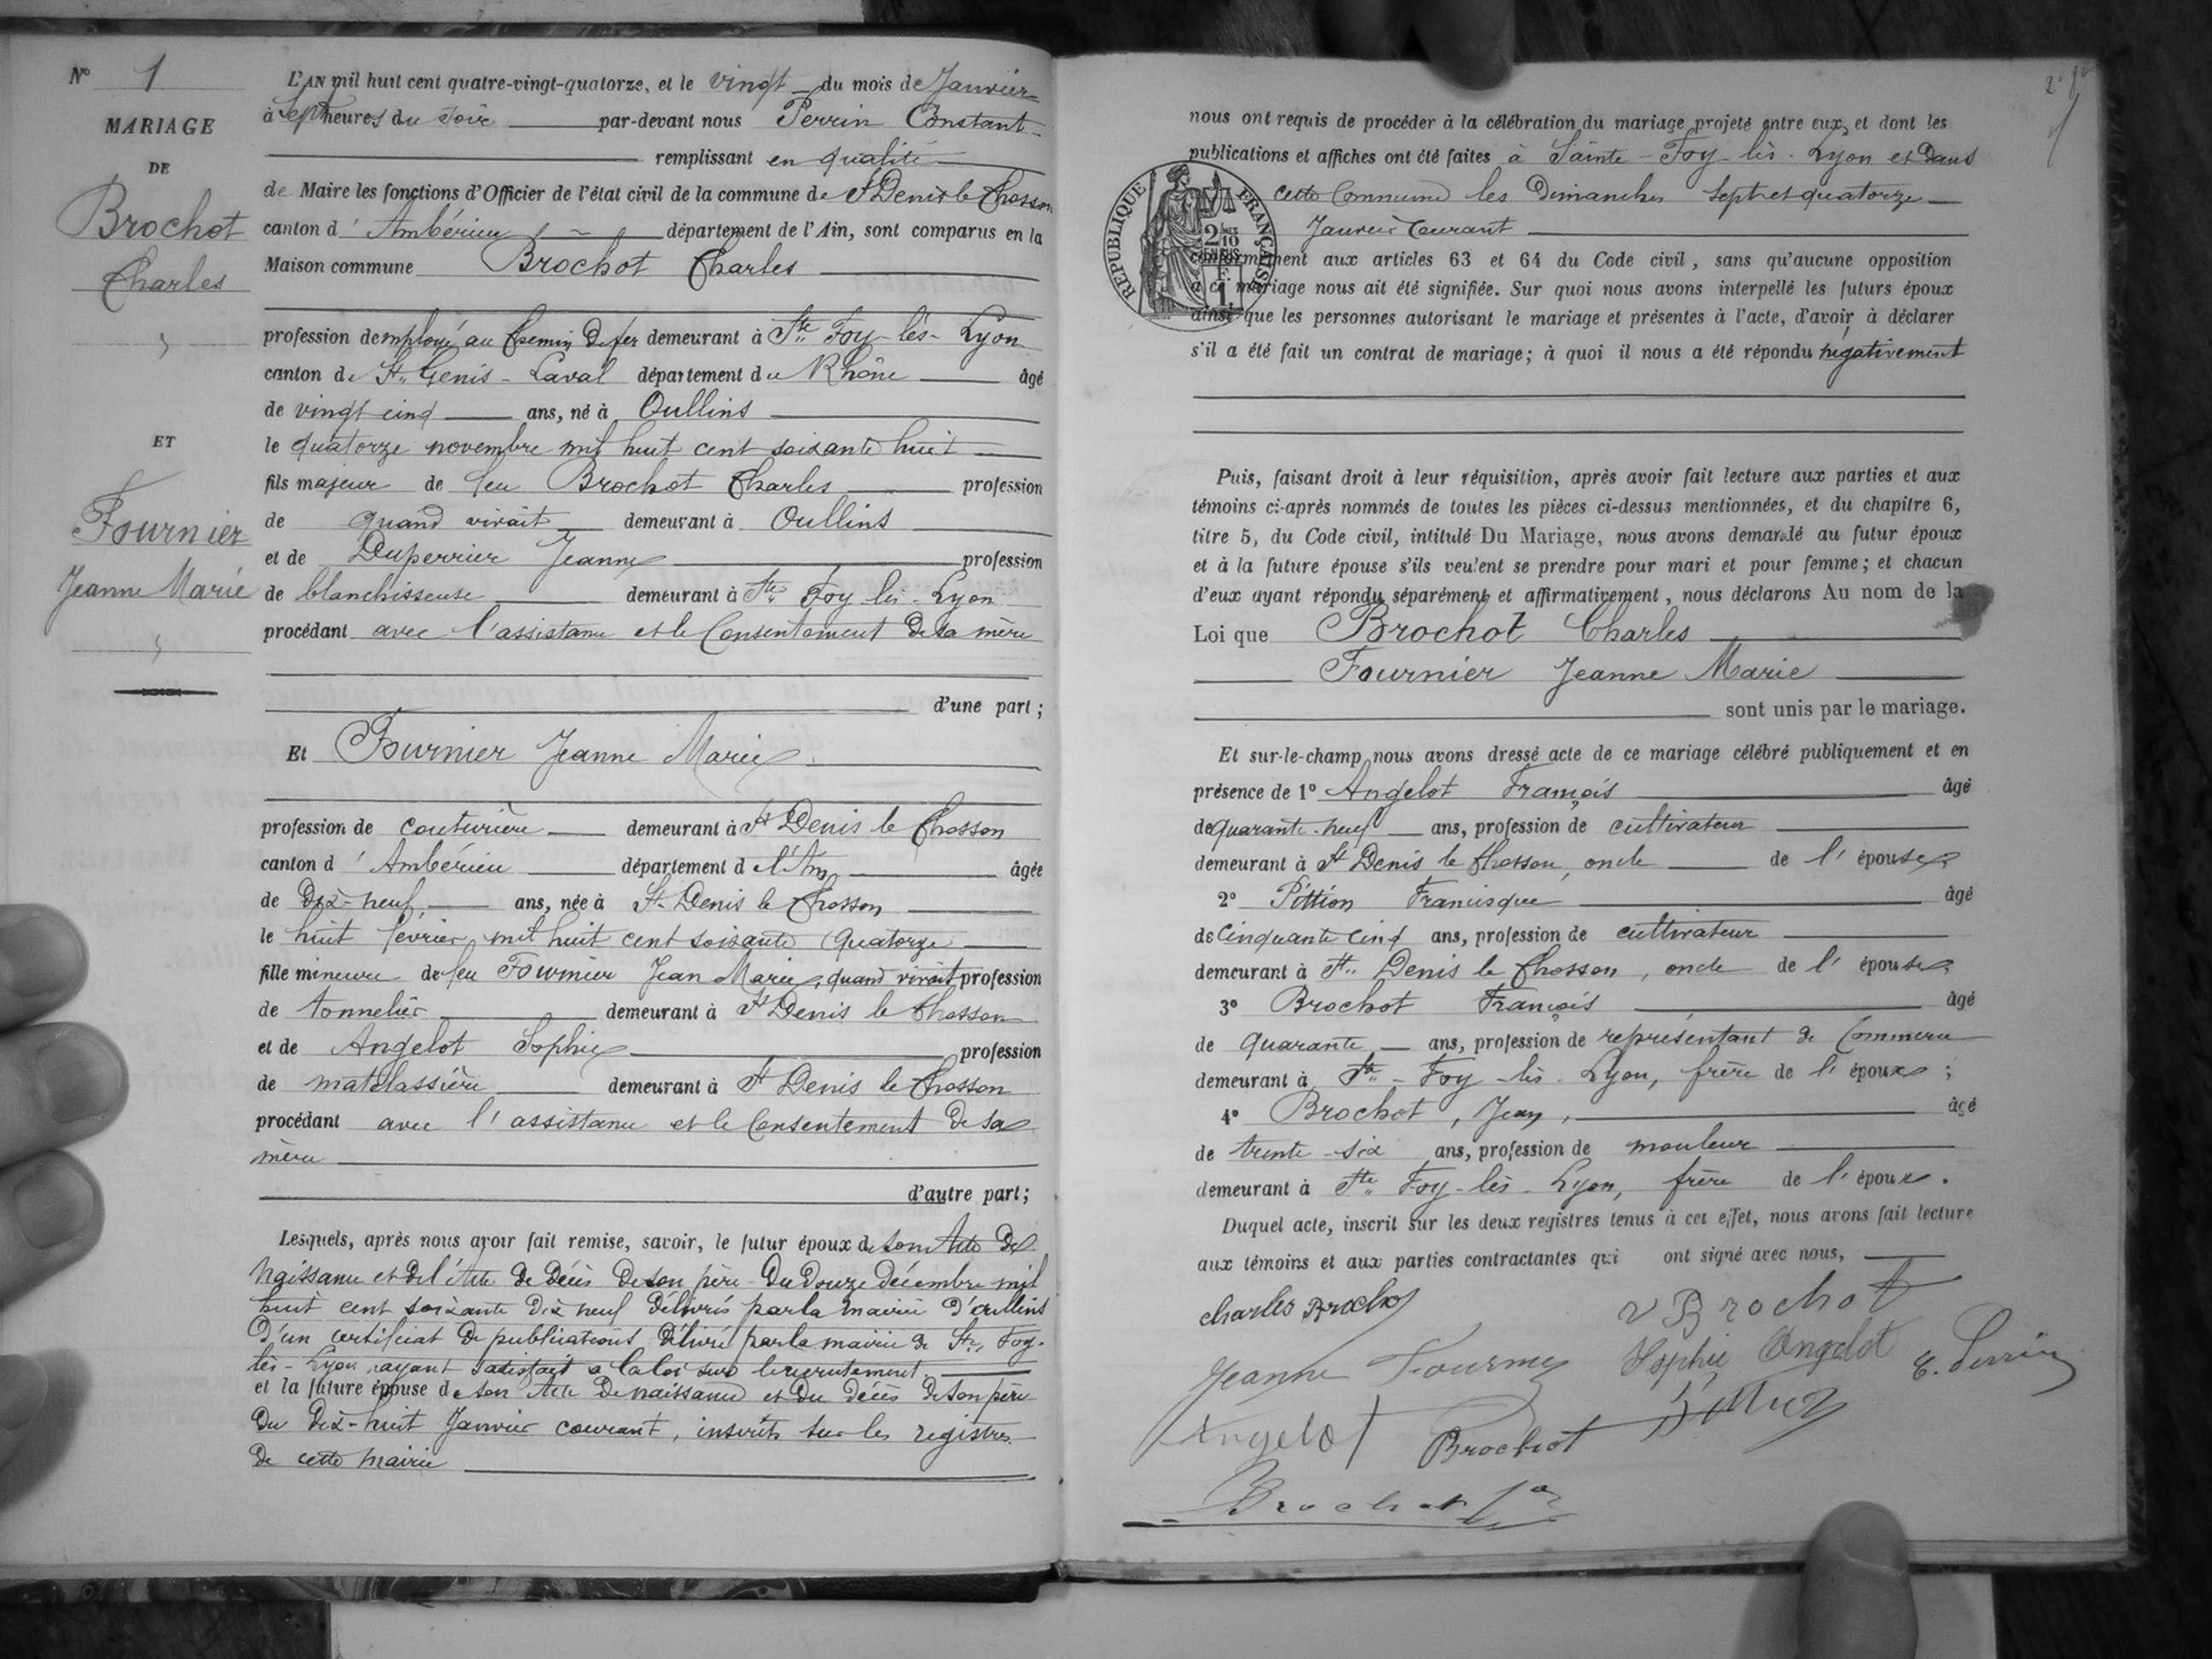 N° 1
MARIAGE
DE
Brochot
Charles
ET
Fournier
Jeanne Marie
L'AN mil huit cent quatre-vingt-quatorze, et le vingt du mois de Janvier
à sept heures du soir par-devant nous Perrin Constant
remplissant en qualité
de Maire les fonctions d'Officier de l'état civil de la commune de St Denis le Chosson
canton d'Ambérieu département de l'Ain, sont comparus en la
Maison commune Brochot Charles
profession d'employé au Chemin de fer demeurant à Ste Foy-lès-Lyon
canton de St Genis-Laval département du Rhône âgé
de vingt cinq ans, né à Oullins
le quatorze novembre mil huit cent soixante huit
fils majeur de feu Brochot Charles profession
de quand vivait demeurant à Oullins
et de Duperrier Jeanne profession
de blanchisseuse demeurant à Ste Foy lès-Lyon
procédant avec l'assistance et le Consentement de sa mère
d'une part;
Et Fournier Jeanne Marie
profession de couturière demeurant à St Denis le Chosson
canton d'Ambérieu département d l'Ain âgée
de Dix-neuf ans, née à St Denis le Chosson
le huit février mil huit cent soixante Quatorze
fille mineure de feu Fournier Jean Marie, quand vivait profession
de tonnelier demeurant à St Denis le Chosson
et de Angelot Sophie profession
de matelassière demeurant à St Denis le Chosson
procédant avec l'assistance et le Consentement de sa
mère
d'autre part;
Lesquels, après nous avoir fait remise, savoir, le futur époux de son Acte de
Naissance et de l'Acte de Décès de son père du douze décembre mil
huit cent soixante dix neuf délivrés par la mairie d'oullins
D'un certificat de publications délivré par la mairie de Ste Foy-
lès-Lyon, ayant satisfait a la loi sur le recrutement.
et la future épouse de son Acte de naissance et du décès de son père
Du dix-huit Janvier courant, inscrits sur les registres
de cette mairie
nous ont requis de procéder à la célébration du mariage projeté entre eux, et dont les
publications et affiches ont été faites à Sainte-Foy-lès-Lyon et dans
cette Commune les Dimanches sept et quatorze
Janvier Courant
RÉPUBLIQUE FRANÇAISE
conformément aux articles 63 et 64 du Code civil, sans qu'aucune opposition
à ce mariage nous ait été signifiée. Sur quoi nous avons interpellé les futurs époux
ainsi que les personnes autorisant le mariage et présentes à l'acte, d'avoir à déclarer
s'il a été fait un contrat de mariage; à quoi il nous a été répondu négativement
Puis, faisant droit à leur réquisition, après avoir fait lecture aux parties et aux
témoins ci-après nommés de toutes les pièces ci-dessus mentionnées, et du chapitre 6,
titre 5, du Code civil, intitulé Du Mariage, nous avons demandé au futur époux
et à la future épouse s'ils veulent se prendre pour mari et pour femme; et chacun
d'eux ayant répondu séparément et affirmativement, nous déclarons Au nom de la
Loi que Brochot Charles
Fournier Jeanne Marie
sont unis par le mariage.
Et sur-le-champ nous avons dressé acte de ce mariage célébré publiquement et en
présence de 1° Angelot François âgé
de quarante-neuf ans, profession de cultivateur
demeurant à St Denis le Chosson, oncle de l'épouse
2° Pittion Francisque âgé
de Cinquante cinq ans, profession de cultivateur
demeurant à St Denis le Chosson, oncle de l'épouse
3° Brochot François âgé
de Quarante ans, profession de représentant de Commerce
demeurant à Ste-Foy-lès-Lyon, frère de l'époux;
4° Brochot, Jean, âgé
de trente-six ans, profession de mouleur
demeurant à Ste Foy-lès-Lyon, frère de l'époux.
Duquel acte, inscrit sur les deux registres tenus à cet effet, nous avons fait lecture
aux témoins et aux parties contractantes qui ont signé avec nous,
charles Brochot
Brochot
Jeanne Fournier
Sophie Angelot
C. Perrin
Angelot
Brochot
Brochot